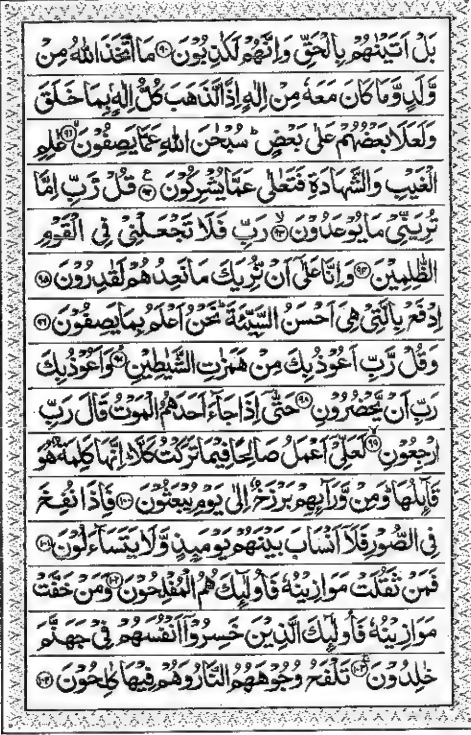 بَلْ اَتَيْنٰهُمْ بِالْحَقِّ وَاِنَّهُمْ لَكٰذِبُوْنَ ۹۰ مَا اتَّخَذَ اللّٰهُ مِنْ
وَّلَدٍ وَّمَا كَانَ مَعَهٗ مِنْ اِلٰهٍ اِذًا لَّذَهَبَ كُلُّ اِلٰهٍۭ بِمَا خَلَقَ
وَلَعَلَا بَعْضُهُمْ عَلٰى بَعْضٍ ؕ سُبْحٰنَ اللّٰهِ عَمَّا يَصِفُوْنَ ۙ ۹۱ عٰلِمِ
الْغَيْبِ وَالشَّهَادَةِ فَتَعٰلٰى عَمَّا يُشْرِكُوْنَ ۧ ۹۲ قُلْ رَّبِّ اِمَّا
تُرِيَنِّيْ مَا يُوْعَدُوْنَ ۙ ۹۳ رَبِّ فَلَا تَجْعَلْنِيْ فِي الْقَوْمِ
الظّٰلِمِيْنَ ۹۴ وَاِنَّا عَلٰٓى اَنْ نُّرِيَكَ مَا نَعِدُهُمْ لَقٰدِرُوْنَ ۹۵
اِدْفَعْ بِالَّتِيْ هِيَ اَحْسَنُ السَّيِّئَةَ ؕ نَحْنُ اَعْلَمُ بِمَا يَصِفُوْنَ ۹۶
وَقُلْ رَّبِّ اَعُوْذُ بِكَ مِنْ هَمَزٰتِ الشَّيٰطِيْنِ ۙ ۹۷ وَاَعُوْذُ بِكَ
رَبِّ اَنْ يَّحْضُرُوْنِ ۹۸ حَتّٰٓى اِذَا جَآءَ اَحَدَهُمُ الْمَوْتُ قَالَ رَبِّ
ارْجِعُوْنِ ۙ ۹۹ لَعَلِّيْٓ اَعْمَلُ صَالِحًا فِيْمَا تَرَكْتُ كَلَّا ؕ اِنَّهَا كَلِمَةٌ هُوَ
قَآئِلُهَا ؕ وَمِنْ وَّرَآئِهِمْ بَرْزَخٌ اِلٰى يَوْمِ يُبْعَثُوْنَ ۱۰۰ فَاِذَا نُفِخَ
فِي الصُّوْرِ فَلَآ اَنْسَابَ بَيْنَهُمْ يَوْمَئِذٍ وَّلَا يَتَسَآءَلُوْنَ ۱۰۱
فَمَنْ ثَقُلَتْ مَوَازِيْنُهٗ فَاُولٰٓئِكَ هُمُ الْمُفْلِحُوْنَ ۱۰۲ وَمَنْ خَفَّتْ
مَوَازِيْنُهٗ فَاُولٰٓئِكَ الَّذِيْنَ خَسِرُوْٓا اَنْفُسَهُمْ فِيْ جَهَنَّمَ
خٰلِدُوْنَ ۚ ۱۰۳ تَلْفَحُ وُجُوْهَهُمُ النَّارُ وَهُمْ فِيْهَا كٰلِحُوْنَ ۱۰۴